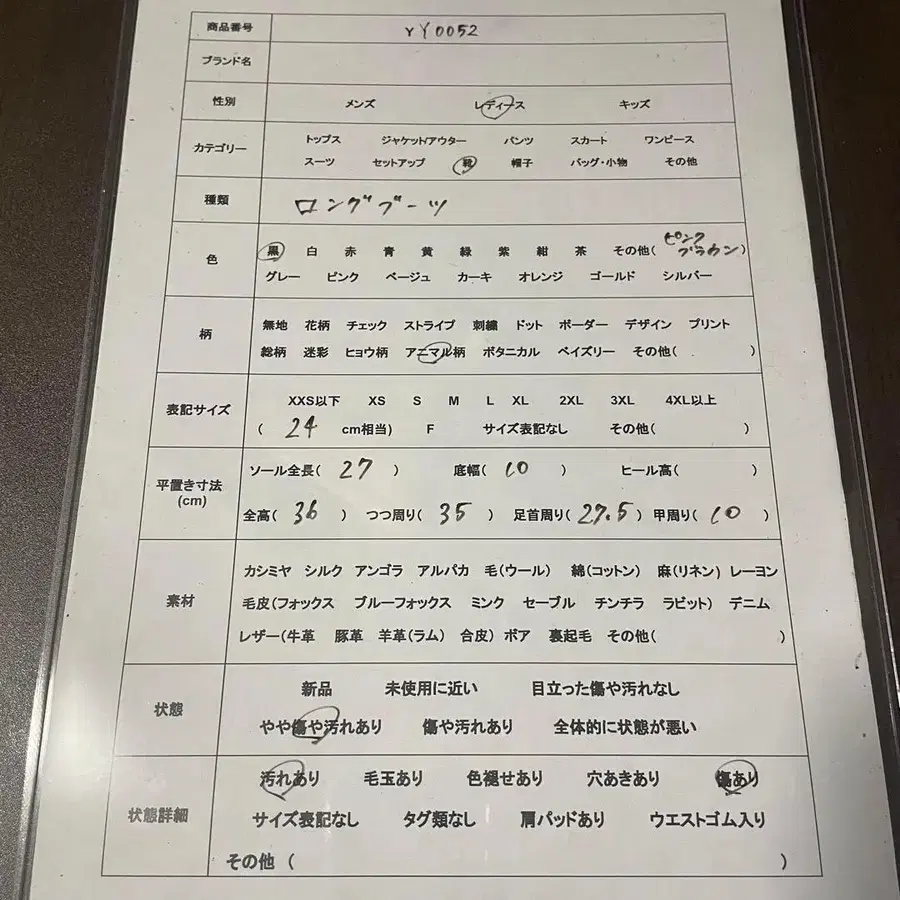 商品番号 YY0052
ブランド名
性別 メンズ レディース キッズ
カテゴリー
トップス ジャケット/アウター パンツ スカート ワンピース
スーツ セットアップ 靴 帽子 バッグ・小物 その他
種類 ロングブーツ
色
黒 白 赤 青 黄 緑 紫 紺 茶 その他(ピンクブラウン)
グレー ピンク ベージュ カーキ オレンジ ゴールド シルバー
柄
無地 花柄 チェック ストライプ 刺繍 ドット ボーダー デザイン プリント
総柄 迷彩 ヒョウ柄 アニマル柄 ボタニカル ペイズリー その他( )
表記サイズ
XXS以下 XS S M L XL 2XL 3XL 4XL以上
( 24 cm相当) F サイズ表記なし その他( )
平置き寸法
(cm)
ソール全長( 27 ) 底幅( 10 ) ヒール高( )
全高( 36 ) つつ周り( 35 ) 足首周り( 27.5 ) 甲周り( 10 )
素材
カシミヤ シルク アンゴラ アルパカ 毛(ウール) 綿(コットン) 麻(リネン) レーヨン
毛皮(フォックス ブルーフォックス ミンク セーブル チンチラ ラビット) デニム
レザー(牛革 豚革 羊革(ラム) 合皮) ボア 裏起毛 その他( )
状態
新品 未使用に近い 目立った傷や汚れなし
やや傷や汚れあり 傷や汚れあり 全体的に状態が悪い
状態詳細
汚れあり 毛玉あり 色褪せあり 穴あきあり 傷あり
サイズ表記なし タグ類なし 肩パッドあり ウエストゴム入り
その他 ( )